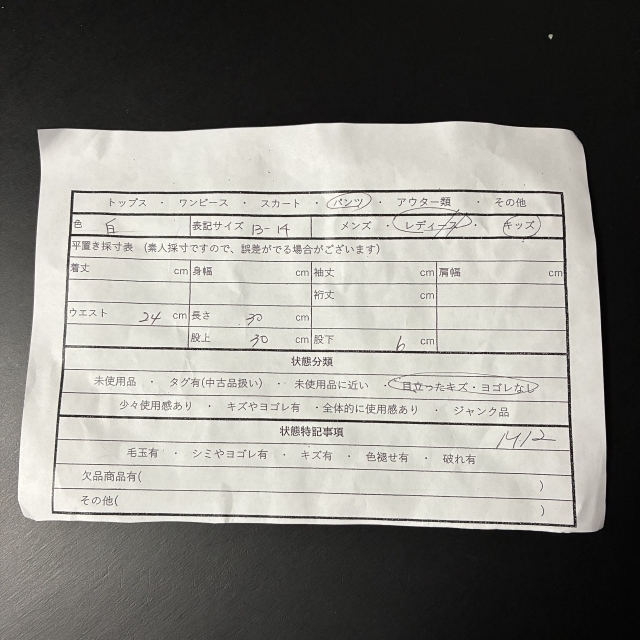 トップス ・ ワンピース ・ スカート ・ パンツ ・ アウター類 ・ その他
色 白 表記サイズ 13-14 メンズ ・ レディース ・ キッズ
平置き採寸表 (素人採寸ですので、誤差がでる場合がございます)
着丈 cm 身幅 cm 袖丈 cm 肩幅 cm
裄丈 cm
ウエスト 24 cm 長さ 30 cm
股上 30 cm 股下 6 cm
状態分類
未使用品 ・ タグ有(中古品扱い) ・ 未使用品に近い ・ 目立ったキズ・ヨゴレなし
少々使用感あり ・ キズやヨゴレ有 ・全体的に使用感あり ・ ジャンク品
状態特記事項
毛玉有 ・ シミやヨゴレ有 ・ キズ有 ・ 色褪せ有 ・ 破れ有
欠品商品有( )
その他( )